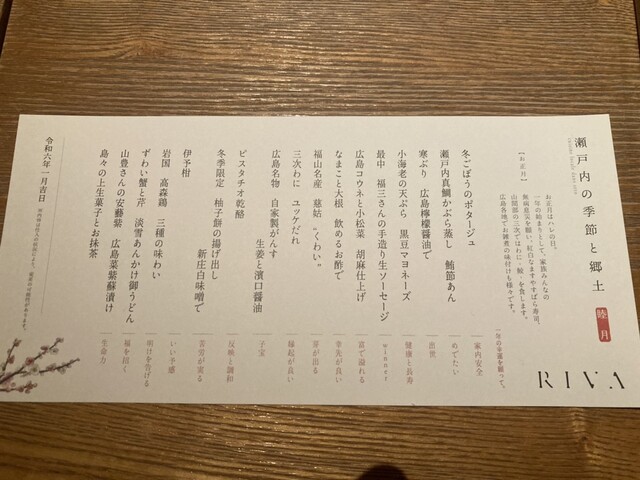 瀬戸内の季節と郷土
睦月
RIVA
【お正月】
お正月はハレの日。
一年の始まりとして、家族みんなの
無病息災を願い、紅白なますやすばら寿司、
山間部の三次ではわに(鮫)を食します。
広島各地でお雑煮の味付けも様々です。
一年の幸運を願って。
冬ごぼうのポタージュ 家内安全
瀬戸内真鯛かぶら蒸し 鮑節あん めでたい
寒ぶり 広島檸檬醤油で 出世
小海老の天ぷら 黒豆マヨネーズ 健康と長寿
最中 福三さんの手造り生ソーセージ winner
広島コウネと小松菜 胡麻仕上げ 富で溢れる
なまこと大根 飲めるお酢で 幸先が良い
福山名産 慈姑 “くわい„ 芽が出る
三次わに ユッケだれ 縁起が良い
広島名物 自家製がんす
生姜と濱口醤油 子宝
ピスタチオ乾酪 反映と調和
冬季限定 柚子餅の揚げ出し
新庄白味噌で 苦労が実る
伊予柑 いい予感
岩国 高森鶏 三種の味わい 明けを告げる
ずわい蟹と芹 淡雪あんかけ御うどん 福を招く
山豊さんの安藝紫 広島菜紫蘇漬け 生命力
島々の上生菓子とお抹茶
令和六年一月吉日